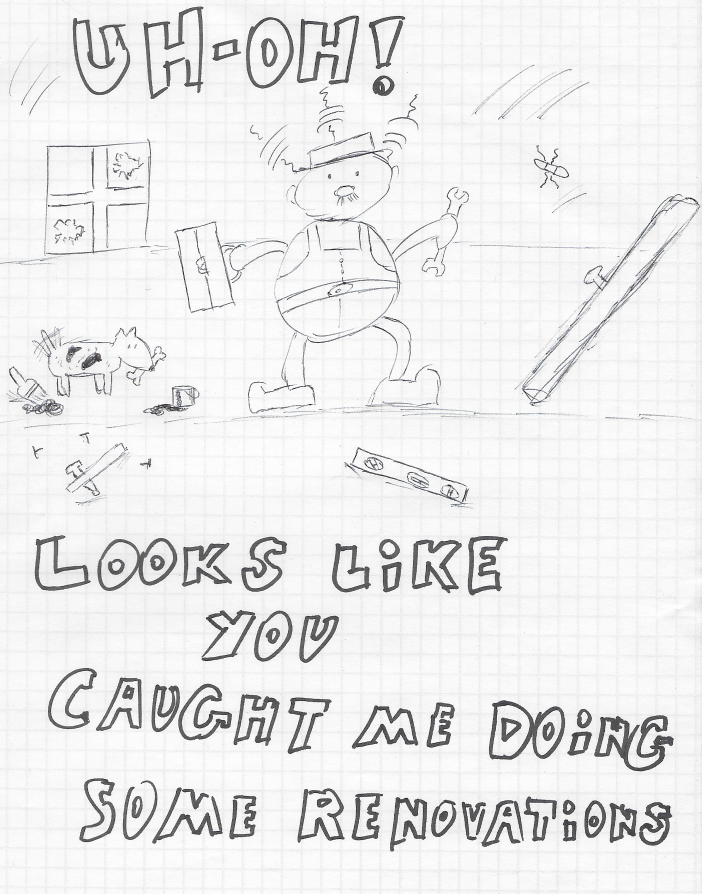 UH-OH!
LOOKS LiKE
YOU
CAUGHT ME DOiNG
SOME RENOVATiONS